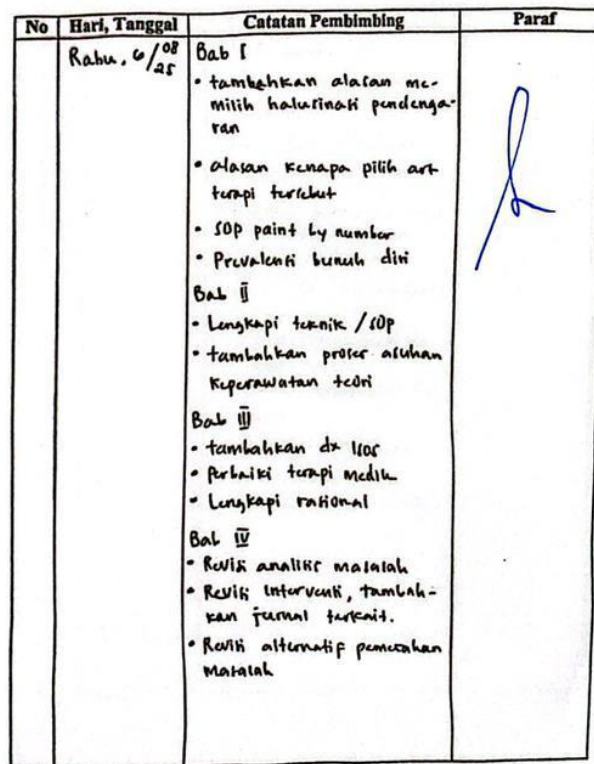 No Hari, Tanggal Catatan Pembimbing Paraf
Rabu, 6/08 25 Bab I
• tambahkan alasan me-
milih halusinasi pendenga-
ran
• alasan kenapa pilih art
terapi tersebut
• SOP paint by number
• Prevalensi bunuh diri
Bab II
• Lengkapi teknik / SOP
• tambahkan proses asuhan
keperawatan teori
Bab III
• tambahkan dx isos
• Perbaiki terapi medik
• Lengkapi rasional
Bab IV
• Revisi analisis masalah
• Revisi intervensi, tambah-
kan jurnal terkait.
• Revisi alternatif pemecahan
masalah